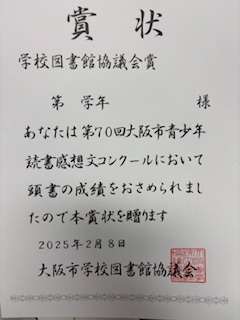 賞状
学校図書館協議会賞
第 学年 様
あなたは第70回大阪市青少年
読書感想文コンクールにおいて
頭書の成績をおさめられまし
たので本賞状を贈ります
2025年2月8日
大阪市学校図書館協議会